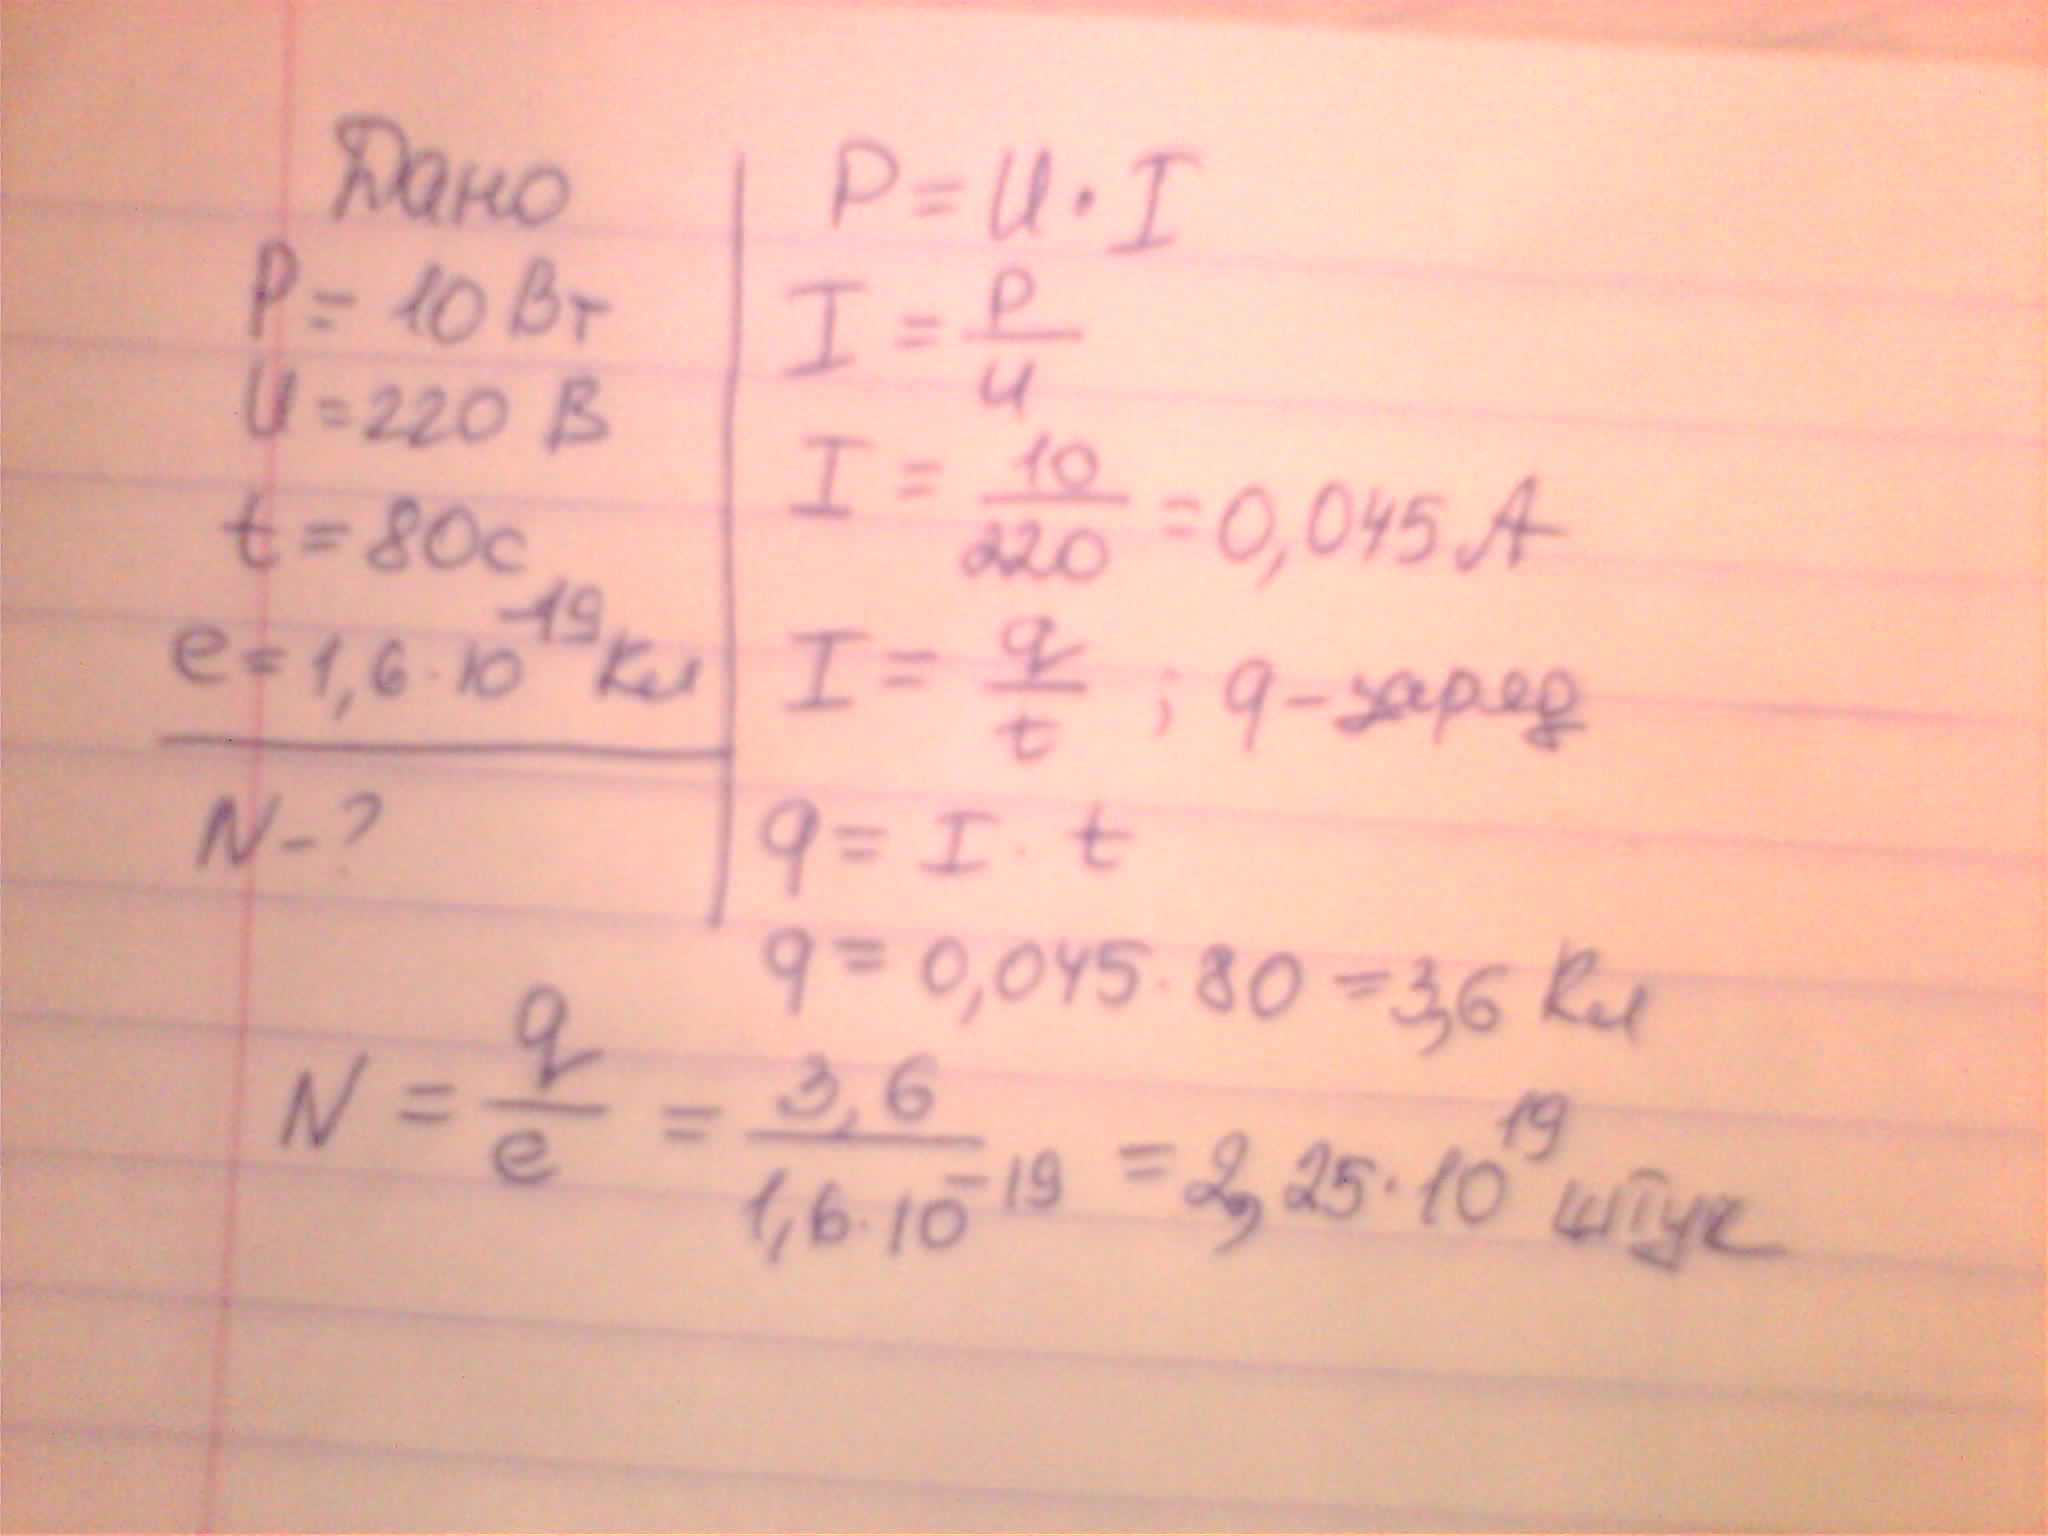 Дано
P = 10 Вт
U = 220 В
t = 80с
e = 1,6 · 10^-19 Кл
N - ?
P = U · I
I = P/U
I = 10/220 = 0,045 А
I = q/t ; q - заряд
q = I · t
q = 0,045 · 80 = 3,6 Кл
N = q/e = 3,6/1,6·10^-19 = 2,25 · 10^19 штук